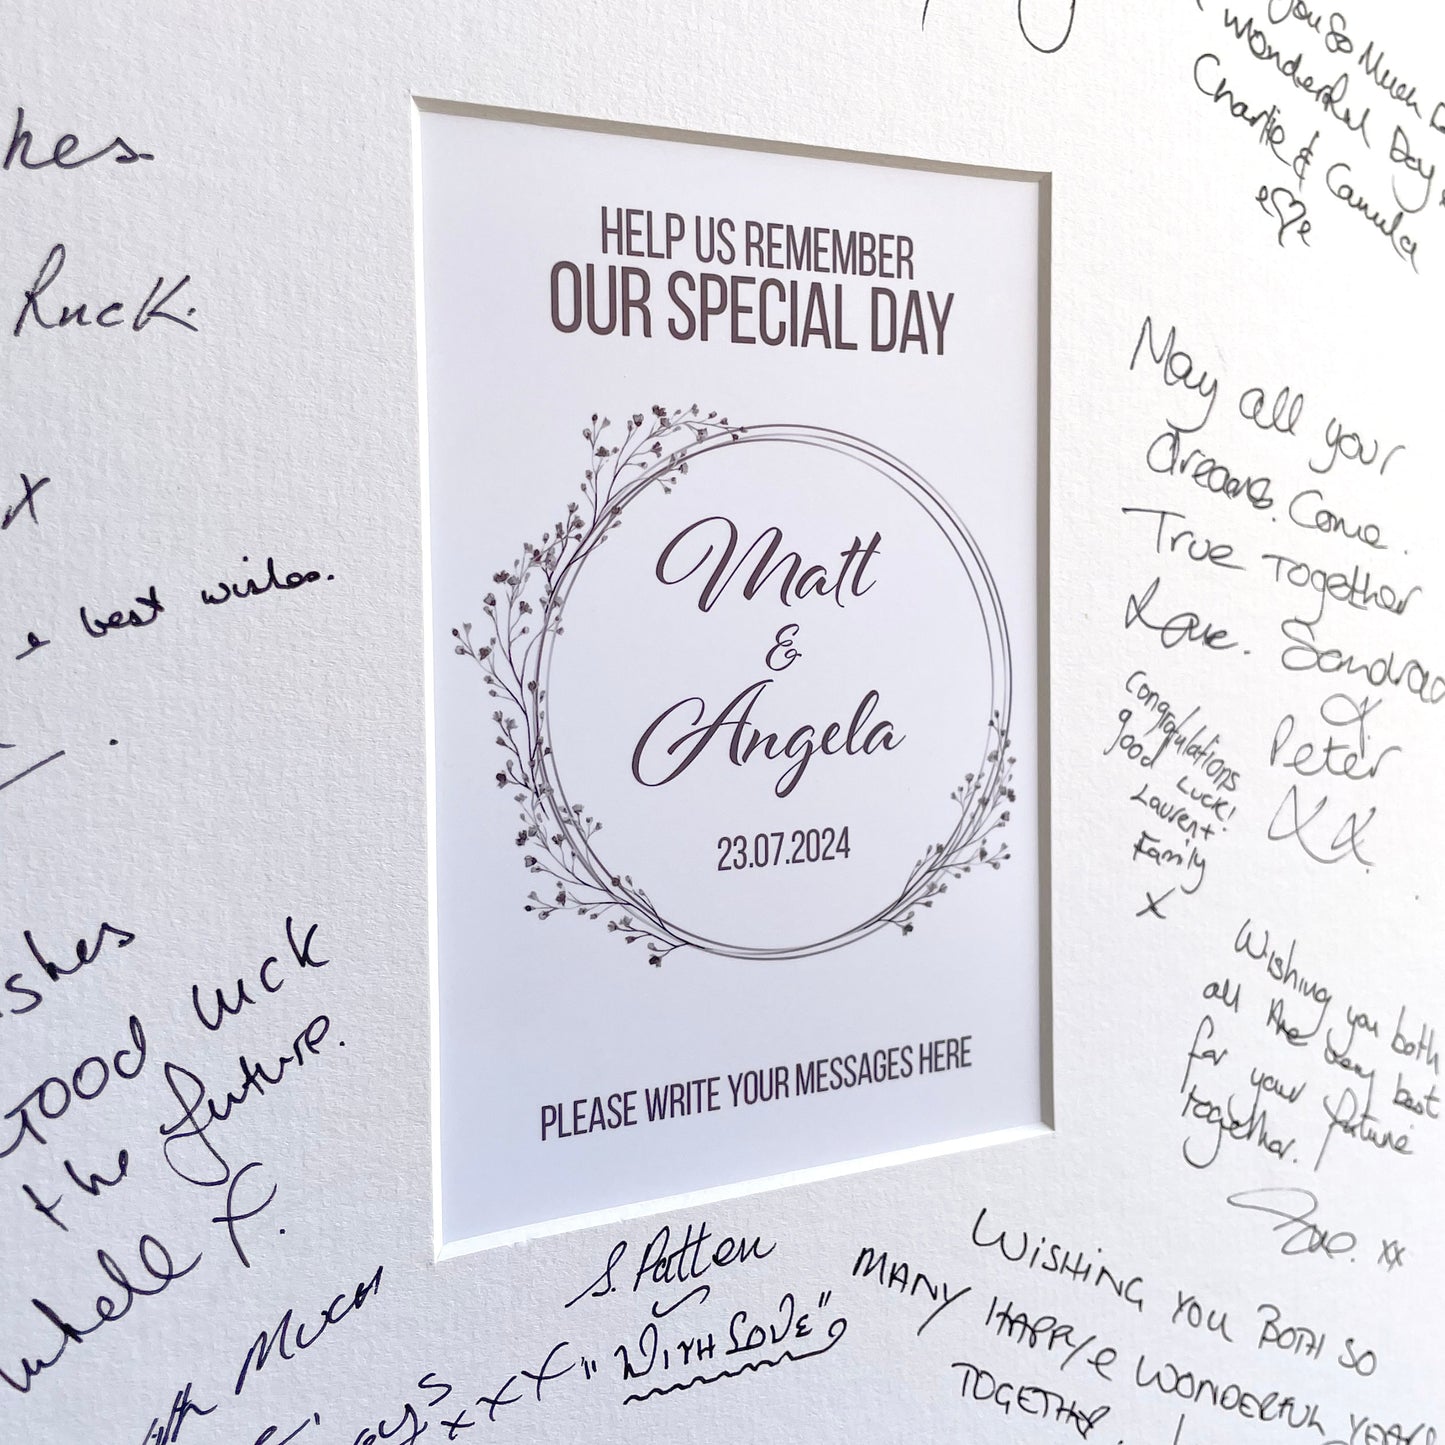 HELP US REMEMBER
OUR SPECIAL DAY
Matt
&
Angela
23.07.2024
PLEASE WRITE YOUR MESSAGES HERE
hes
Ruck.
x
& best wishes.
shes
GOOD luck
+ the future.
F.
Much
S. Patten
xxxx "WITH LOVE"
you So Much
Wonderful Day
Charlie & Camula
May all your
dreams. Come.
True Together
Love. Sandra
&
Peter
XX.
Congratulations
good Luck!
Laurent
Family
X
Wishing you both
all the very best
for your future
together.
xx
WISHING YOU BOTH SO
MANY HAPPY & WONDERFUL YEARS
TOGETHER.